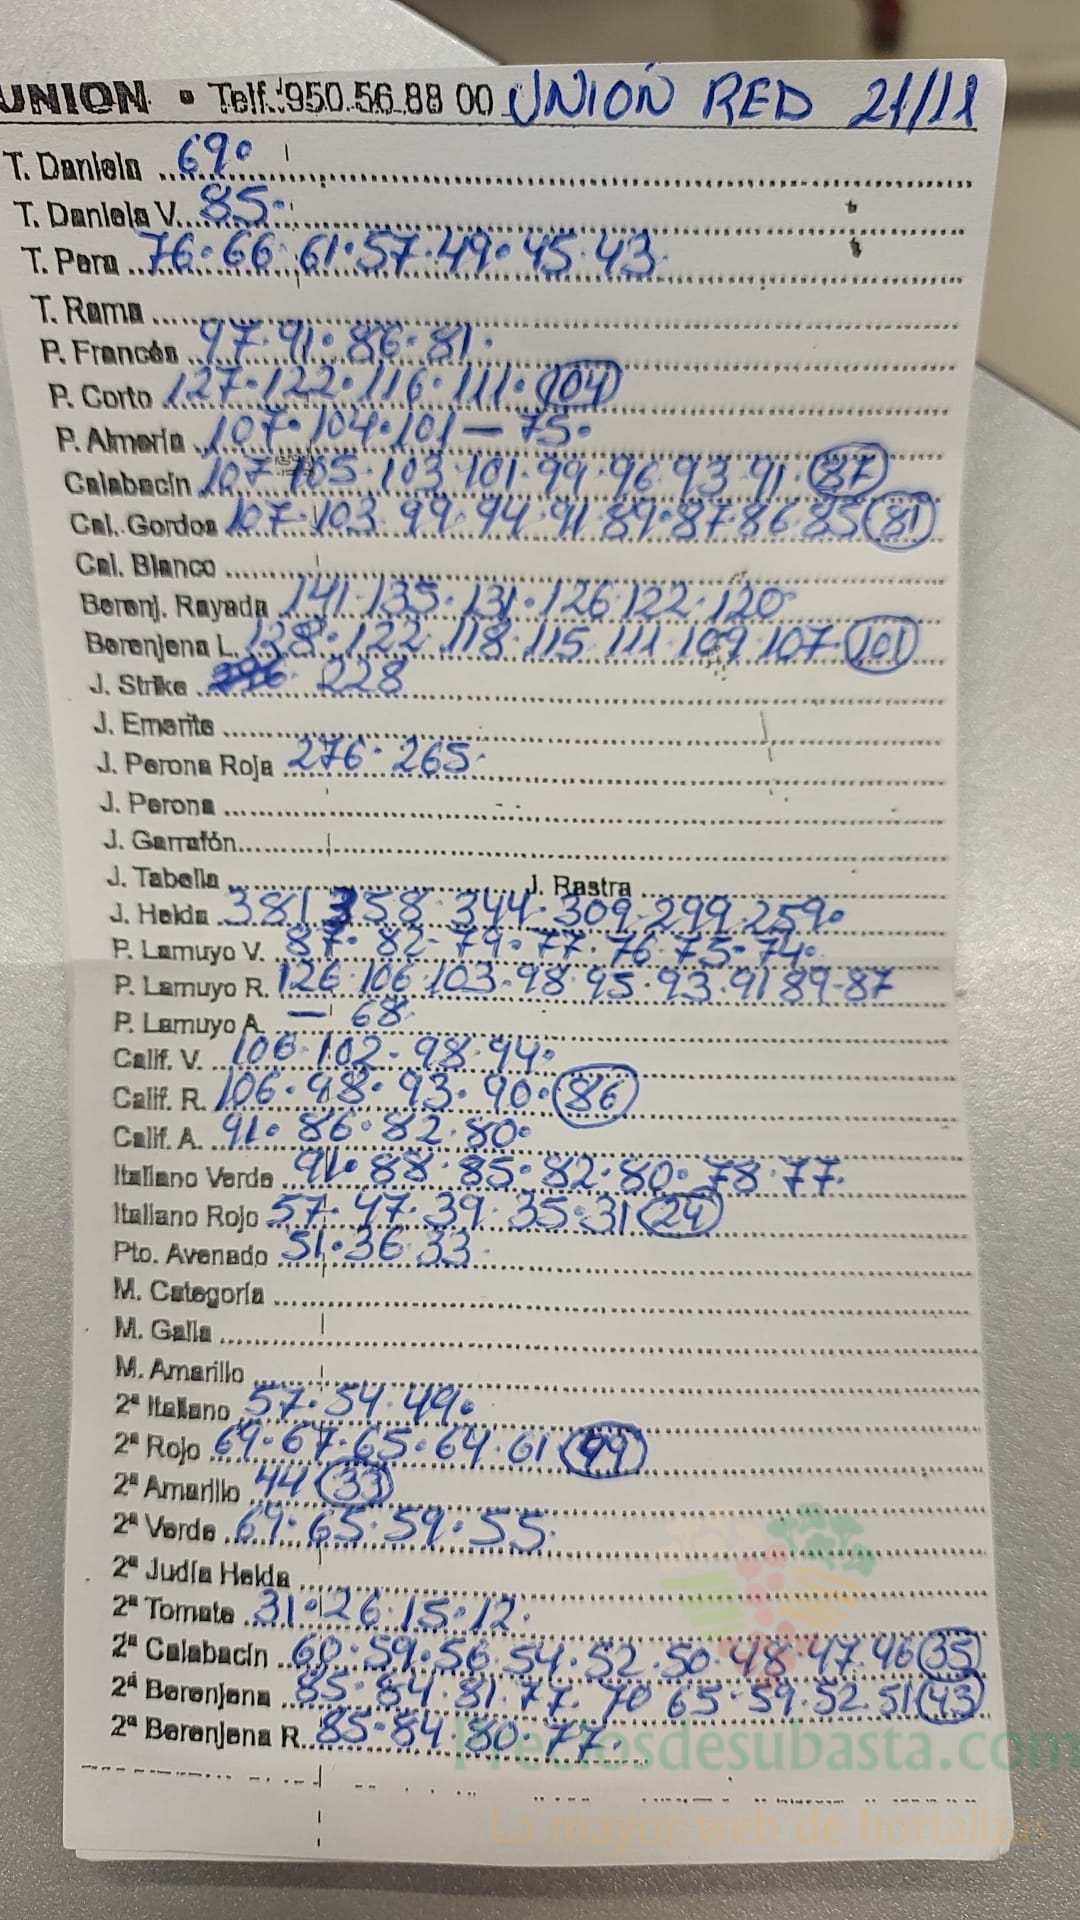 UNION • Telf. 950.56.88 00 UNIÓN RED 21/11
T. Daniela 69.
T. Daniela V. 85.
T. Pera 76. 66. 61. 57. 49. 45. 43.
T. Rama
P. Francés 97. 91. 86. 81.
P. Corto 127. 122. 116. 111. 104
P. Almería 107. 104. 101 — 75.
Calabacín 107 105. 103. 101. 99. 96. 93. 91. 87
Cal. Gordos 107. 103. 99. 94. 91. 89. 87. 86. 85 81
Cal. Blanco
Berenj. Rayada 141. 135. 131. 126. 122. 120.
Berenjena L. 128. 122. 118. 115. 111. 109. 107. 101
J. Strike 228
J. Emerite
J. Perona Roja 276. 265.
J. Perona
J. Garrafón
J. Tabella J. Rastra
J. Helda 381 358. 344. 309. 299. 259.
P. Lamuyo V. 87. 82. 79. 77. 76. 75. 74.
P. Lamuyo R. 126. 106. 103. 98. 95. 93. 91 89-87
P. Lamuyo A. — 68.
Calif. V. 106. 102. 98. 94.
Calif. R. 106. 98. 93. 90. 86
Calif. A. 91. 86. 82. 80.
Italiano Verde 91. 88. 85. 82. 80. 78. 77.
Italiano Rojo 57. 47. 39. 35. 31 24
Pto. Avenado 51. 36. 33.
M. Categoría
M. Galia
M. Amarillo
2ª Italiano 57. 54. 49.
2ª Rojo 69. 67. 65. 64. 61
2ª Amarillo 44 33
2ª Verde 69. 65. 59. 55.
2ª Judía Helda
2ª Tomate 31. 26. 15. 12.
2ª Calabacín 60. 59. 56. 54. 52. 50. 48. 47. 46 35
2ª Berenjena 85. 84. 81. 77. 70 65. 59. 52. 51 43
2ª Berenjena R. 85. 84. 80. 77.
Preciosdesubasta.com
La mayor web de hortalizas